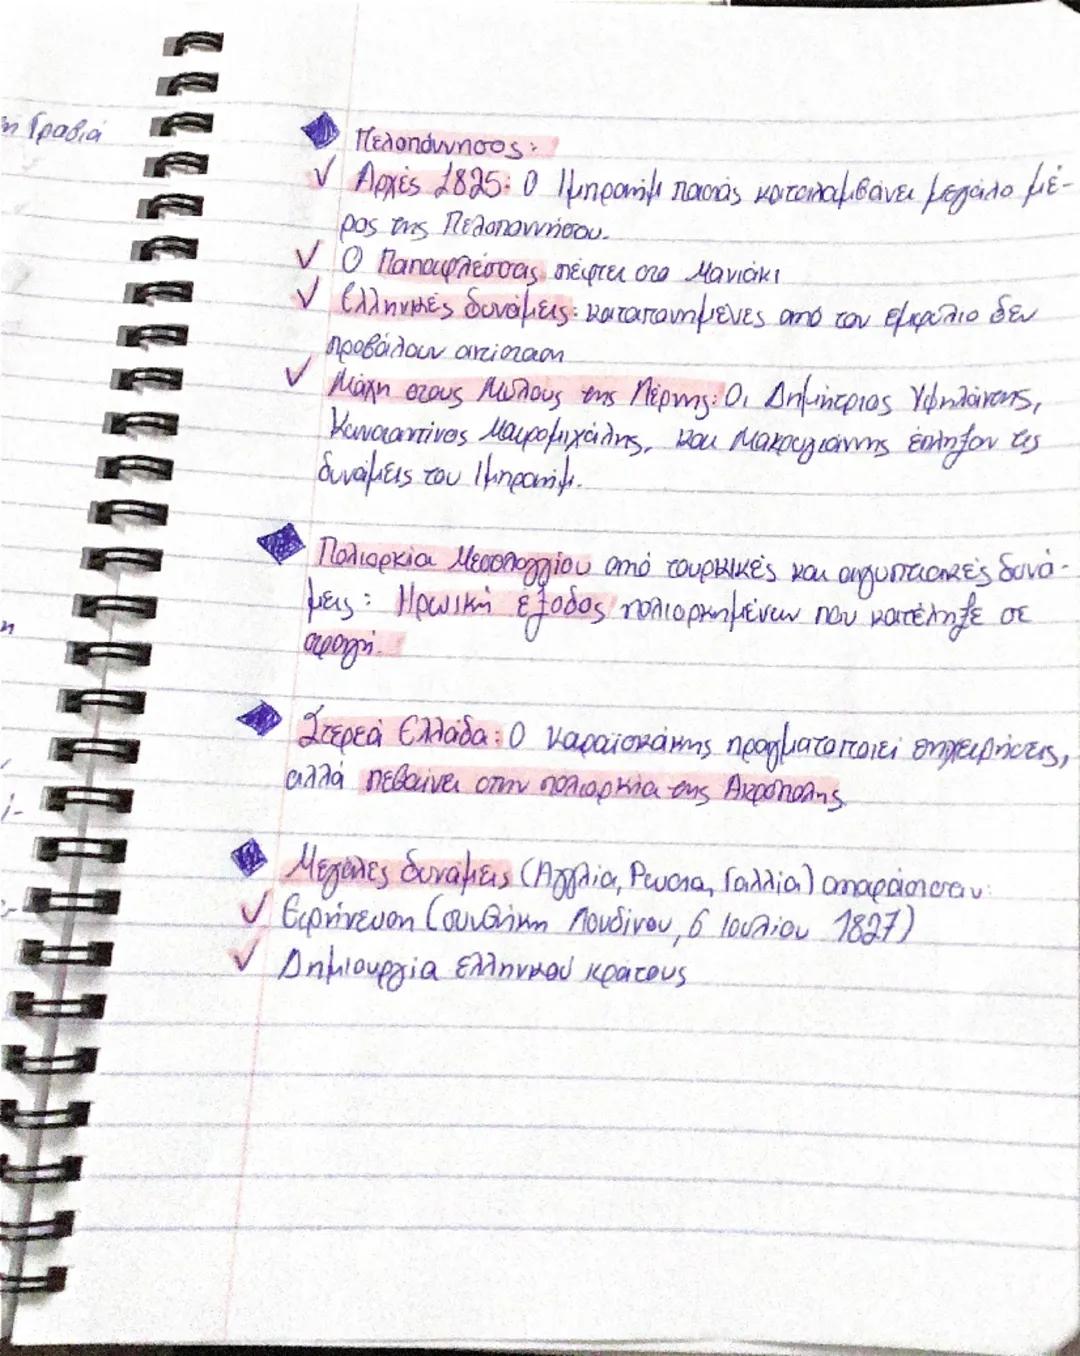 τη Γραβιά
Πελοπόννησος:
Αρχές 1825: Ο Ιμπραήμ πασάς καταλαμβάνει μεγάλο μέ-
ρος της Πελοποννήσου.
Ο Παπαφλέσσας πέφτει στο Μανιάκι
Ελληνικές δυνάμεις: καταπονημένες από τον εμφύλιο δεν
προβάλουν αντίσταση
Μάχη στους Μύλους της Λέρνης: Οι Δημήτριος Υψηλάντης,
Κωνσταντίνος Μαυρομιχάλης, και Μακρυγιάννης έπληξαν τις
δυνάμεις του Ιμπραήμ.
Πολιορκία Μεσολογγίου από τουρκικές και αιγυπτιακές δυνά-
μεις: Ηρωική έξοδος πολιορκημένων που κατέληξε σε
σφαγή.
Στερεά Ελλάδα: Ο Καραϊσκάκης πραγματοποιεί επιχειρήσεις,
αλλά πεθαίνει στην πολιορκία της Ακρόπολης
Μεγάλες δυνάμεις (Αγγλία, Ρωσία, Γαλλία) αποφάσισαν:
Ειρήνευση (συνθήκη Λονδίνου, 6 Ιουλίου 1827)
Δημιουργία ελληνικού κράτους